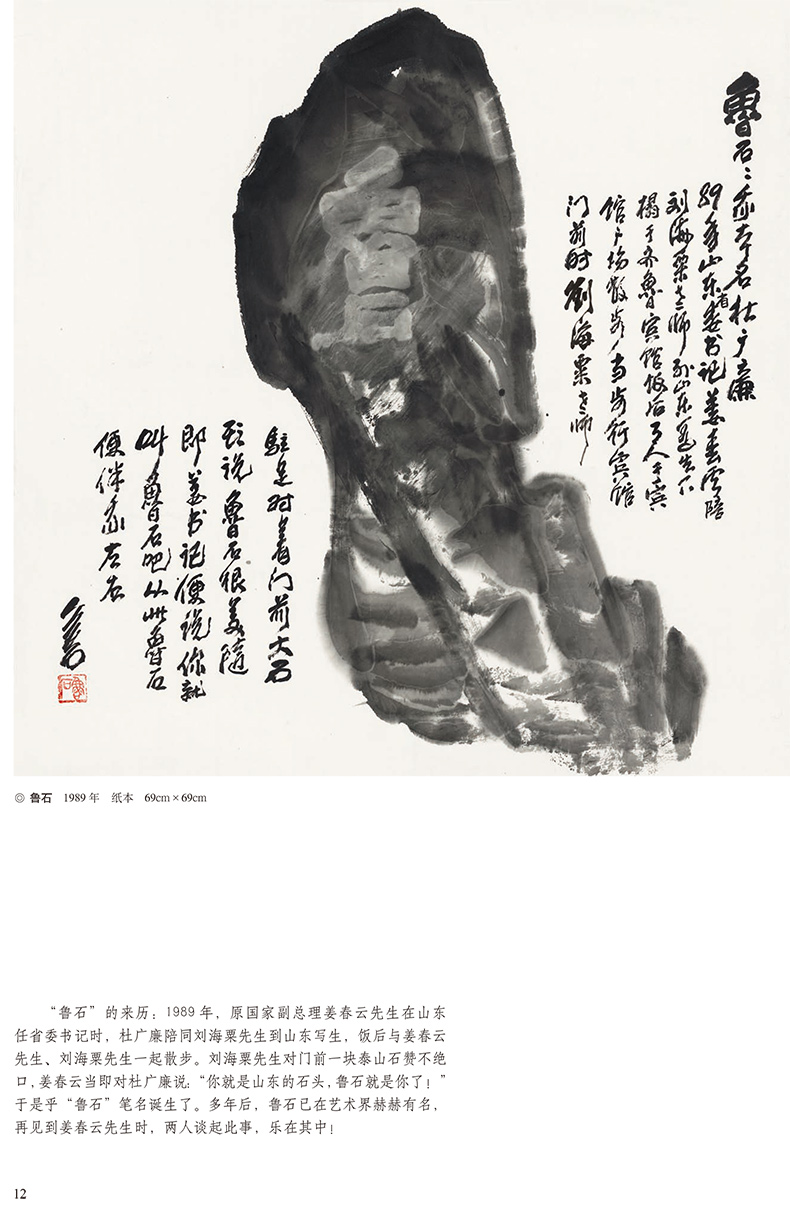 魯石：亦本名杜广廉
89年山东省委书记姜春云陪
刘海粟老师到山东写生下
榻于齐鲁宾馆饭后三人于宾
馆广场散步／当步行宾馆
门前时劉海粟老师
駐足对着门前大石
头说鲁石很美随
即姜书记便说你就
叫鲁石吧从此鲁石
便伴我左右
◎ 鲁石 1989 年 纸本 69cm×69cm
“鲁石”的来历：1989 年，原国家副总理姜春云先生在山东
任省委书记时，杜广廉陪同刘海粟先生到山东写生，饭后与姜春云
先生、刘海粟先生一起散步。刘海粟先生对门前一块泰山石赞不绝
口，姜春云当即对杜广廉说：“你就是山东的石头，鲁石就是你了！”
于是乎“鲁石”笔名诞生了。多年后，鲁石已在艺术界赫赫有名，
再见到姜春云先生时，两人谈起此事，乐在其中！
12